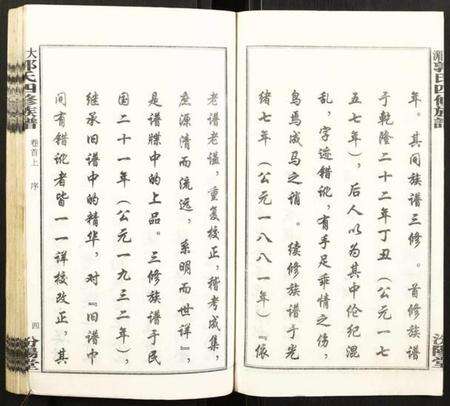 年。其间族谱三修。首修族谱
于乾隆二十二年丁丑（公元一七
五七年），后人以为其中伦纪混
乱，字迹错讹，有手足乖情之伤，
鸟焉成马之诮。续修族谱于光
绪七年（公元一八八一年）『依
老谱老谥，重复校正，稽考成集，
庶源清而流远，系明而世详』，
是谱牒中的上品。三修族谱于民
国二十一年（公元一九三二年），
继承旧谱中的精华，对『旧谱中
间有错讹者皆一一详校改正，其
大郭氏四修族譜
卷首上 序
四
汾陽堂
郭氏四修族譜
汾陽堂